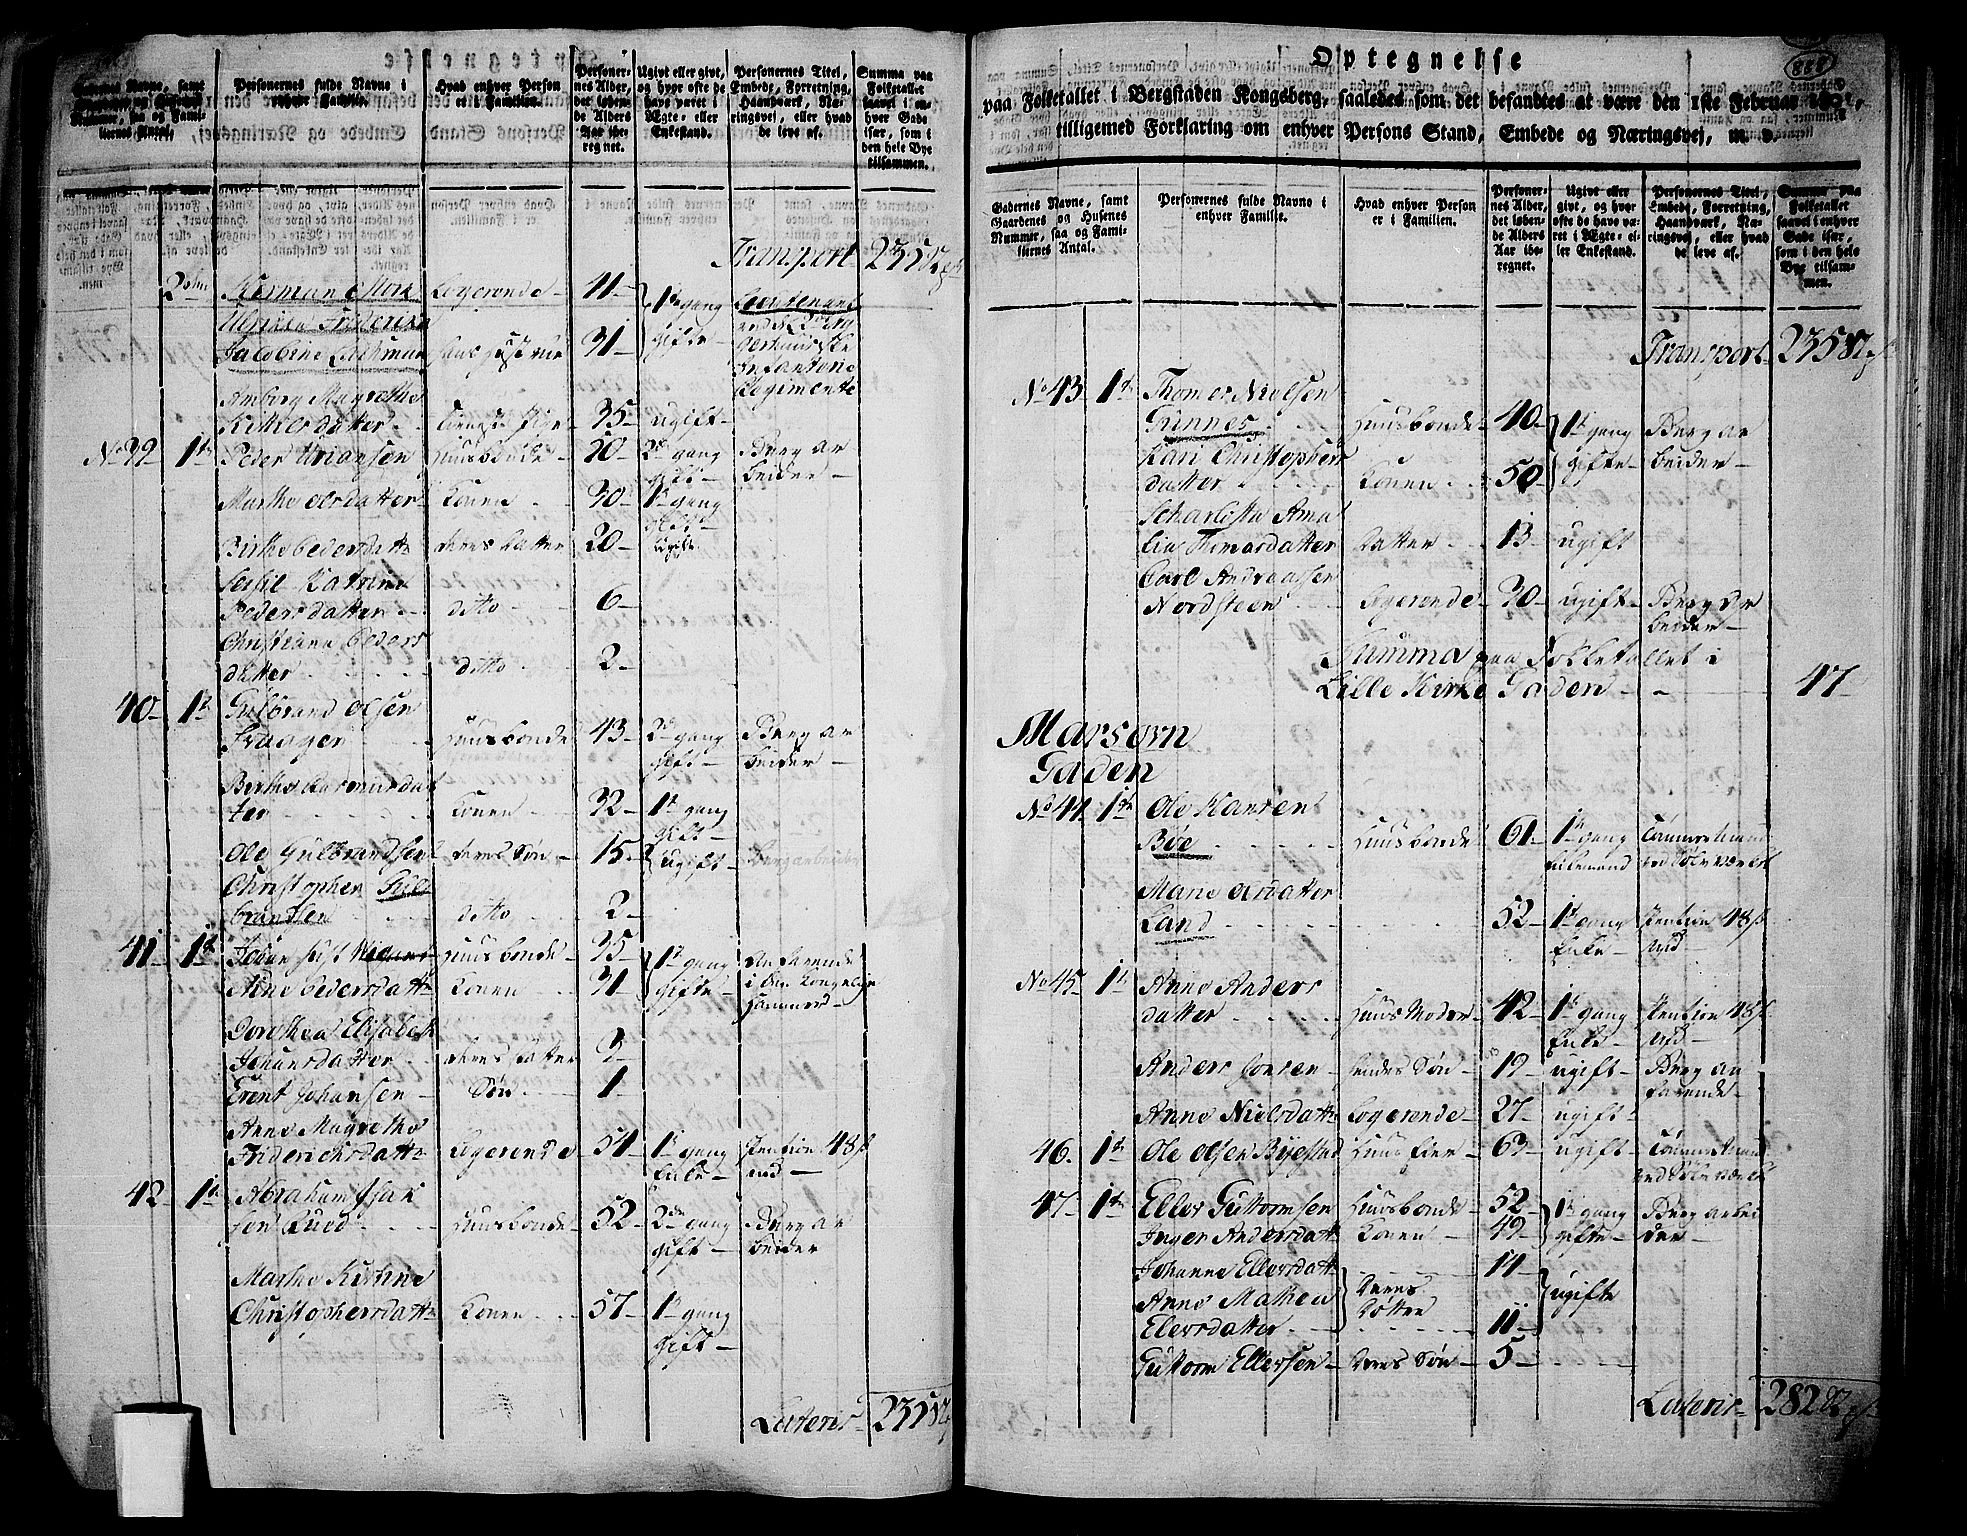 Gadernes Navne, samt
Gaardenes og Husenes
Nummer, saa og Fami-
liernes Antal.
Personernes fulde Navne i
enhver Familie.
Hvad enhver Person
er i Familien.
Personer-
nes Alder,
det løben-
de Alders
Aar ibe-
regnet.
Ugivt eller givt,
og hvor ofte de
have været i
Ægte- eller
Enkestand.
Personernes Titel,
Embede, Forretning,
Haandværk, Næ-
ringsvej, eller hvad
de leve af.
Summa paa
Folketallet
saavel i en-
hver Gade
især, som i
den hele Bye
tilsammen.
Transport 235
2den Herman Mork Logerende 41 1te gang Lieutenant
Ulrica Friderica
Jacobine Lachman hans Hustrue 31 gifte
Infanterie
Regimente
Anborg Magrethe
Kittelsdatter tieneste Pige 35 ugift
No 39 1te Peder Hansen Huusbonde 2den gang Berg ar
gift beider
Marthe Olsdatter Konen 30 1te gang
gift
Birthe Pedersdatter deres Datter 20 ugift
Sessil Katrina
Pedersdatter ditto 6
Christiana Peders
datter ditto 2
40 1te Gulbrand Olsen
Huusbonde 43 2den gang Berg ar
gift beider
Birthe Rasmusdat
ter Konen 32 1te gang
gift
Ole Gulbrandsen deres Søn 15 ugift Bergarbeider
Christopher Gul
brandsen ditto 2
41 1te Johan Huusbonde 35 1te gang
Anne Pedersdatter Konen 31 gifte
Dorothea Elisabeth
Johansdatter deres Datter 3
Erent Johansen Søn 1
Anne Magrethe
Friderichsdatter Logerende 54 1te gang Pention 48 s
Enke
42 1te Abraham Isak
sen Ruud Huusbonde 52 2den gang Berg ar
gift beider
Marthe Kirstine
Christophersdatter Konen 57 1te gang
gift
Lateris 235
Optegnelse
paa Folketallet i Bergstaden Kongsberg, saaledes som det befandtes at være den 1ste Februar 1801,
tilligemed Forklaring om enhver Persons Stand, Embede og Næringsvej, m. v.
Gadernes Navne, samt
Gaardenes og Husenes
Nummer, saa og Fami-
liernes Antal.
Personernes fulde Navne i
enhver Familie.
Hvad enhver Person
er i Familien.
Personer-
nes Alder,
det løben-
de Alders
Aar ibe-
regnet.
Ugivt eller
givt, og hvor
ofte de have væ-
ret i Ægte- el-
ler Enkestand.
Personernes Titel,
Embede, Forretning,
Haandværk, Næ-
ringsvej, eller hvad
de leve af.
Summa paa
Folketallet
saavel i enhver
Gade især,
som i den hele
Bye tilsam-
men.
Transport 235
No 43 1te Thomes Nielsen
Gunnes Huusbonde 40 1te gang Berg ar
Kari Christophers gifte beider
datter Konen 50
Scharlotta Ama
lia Thomasdatter Datter 13 ugift
Carl Andreassen
Nordsteen Logerende 30 ugift Berg ar
beider
Summa paa Folketallet i
Lille Kirke Gaden 47
Marsovn
Gaden
No 44 1te Ole Hansen
Bøe Huusbonde 61 1te gang Tømmermand
Enkemand ved Sølvværket
Marie Olsdatter
Land 52 1te gang Pention 48 s
Enke
No 45 1te Anne Anders
datter Huus Moder 42 1te gang Pention 48 s
Enke
Anders Jonsen hendes Søn 19 ugift Berg an
farende
Anne Nielsdatter Logerende 27 ugift
46 1te Ole Olsen Byestad Huus Eier 63 ugift Tømmermand
ved Sølvværket
47 1te Eller Guttormsen Huusbonde 52 1te gang Berg arbei
Inger Andersdatter Konen 49 gifte der
Johanne Ellersdatter 14
Anne Mathea deres ugifte
Elersdatter Døttre 11
Guttorm Ellersen deres Søn 5
Lateris 282